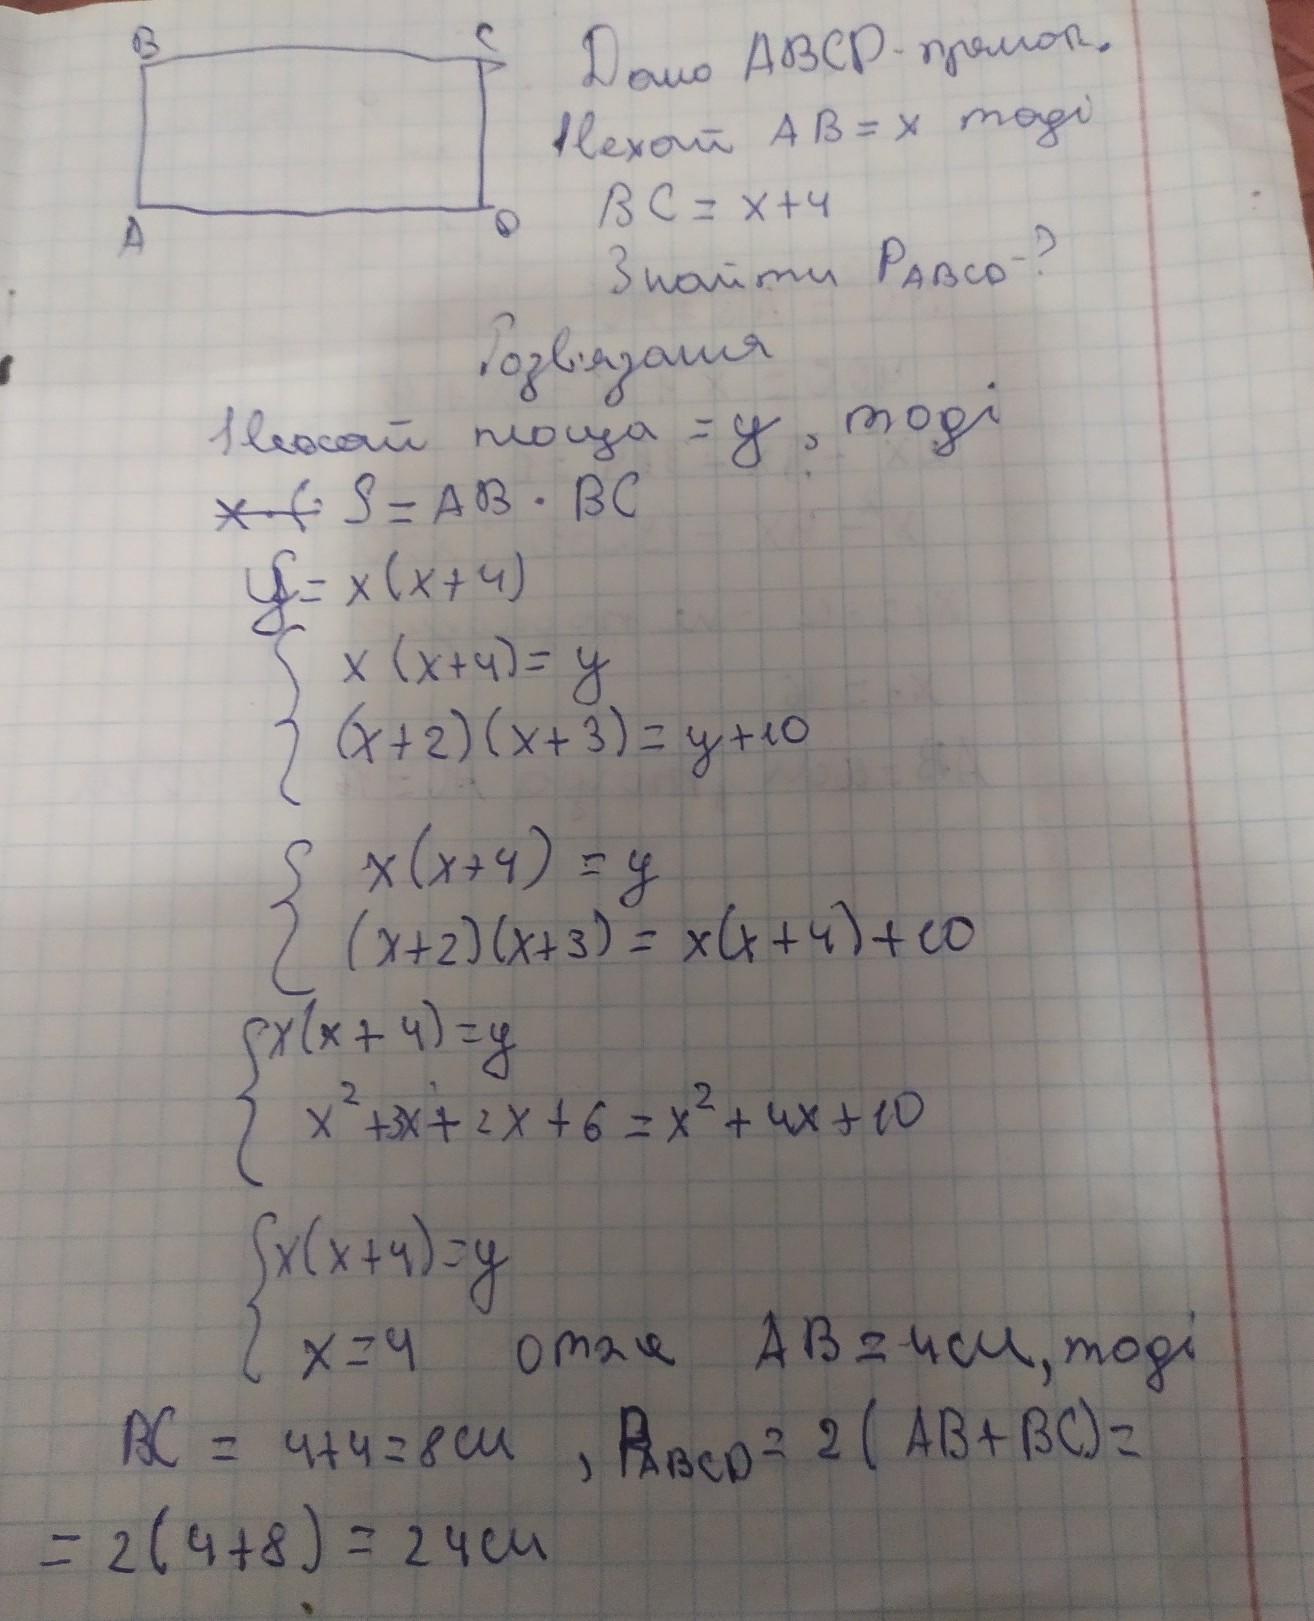 B C
A D
Дано ABCD - прямок.
Нехай AB = x тоді
BC = x+4
Знайти P ABCD - ?
Розв'язання
Нехай площа = y, тоді
S = AB · BC
y = x(x+4)
x(x+4) = y
(x+2)(x+3) = y+10
x(x+4) = y
(x+2)(x+3) = x(x+4)+10
x(x+4) = y
x² + 3x + 2x + 6 = x² + 4x + 10
x(x+4) = y
x = 4 отже AB = 4см, тоді
BC = 4+4 = 8см , P ABCD = 2( AB+BC) =
= 2(4+8) = 24см